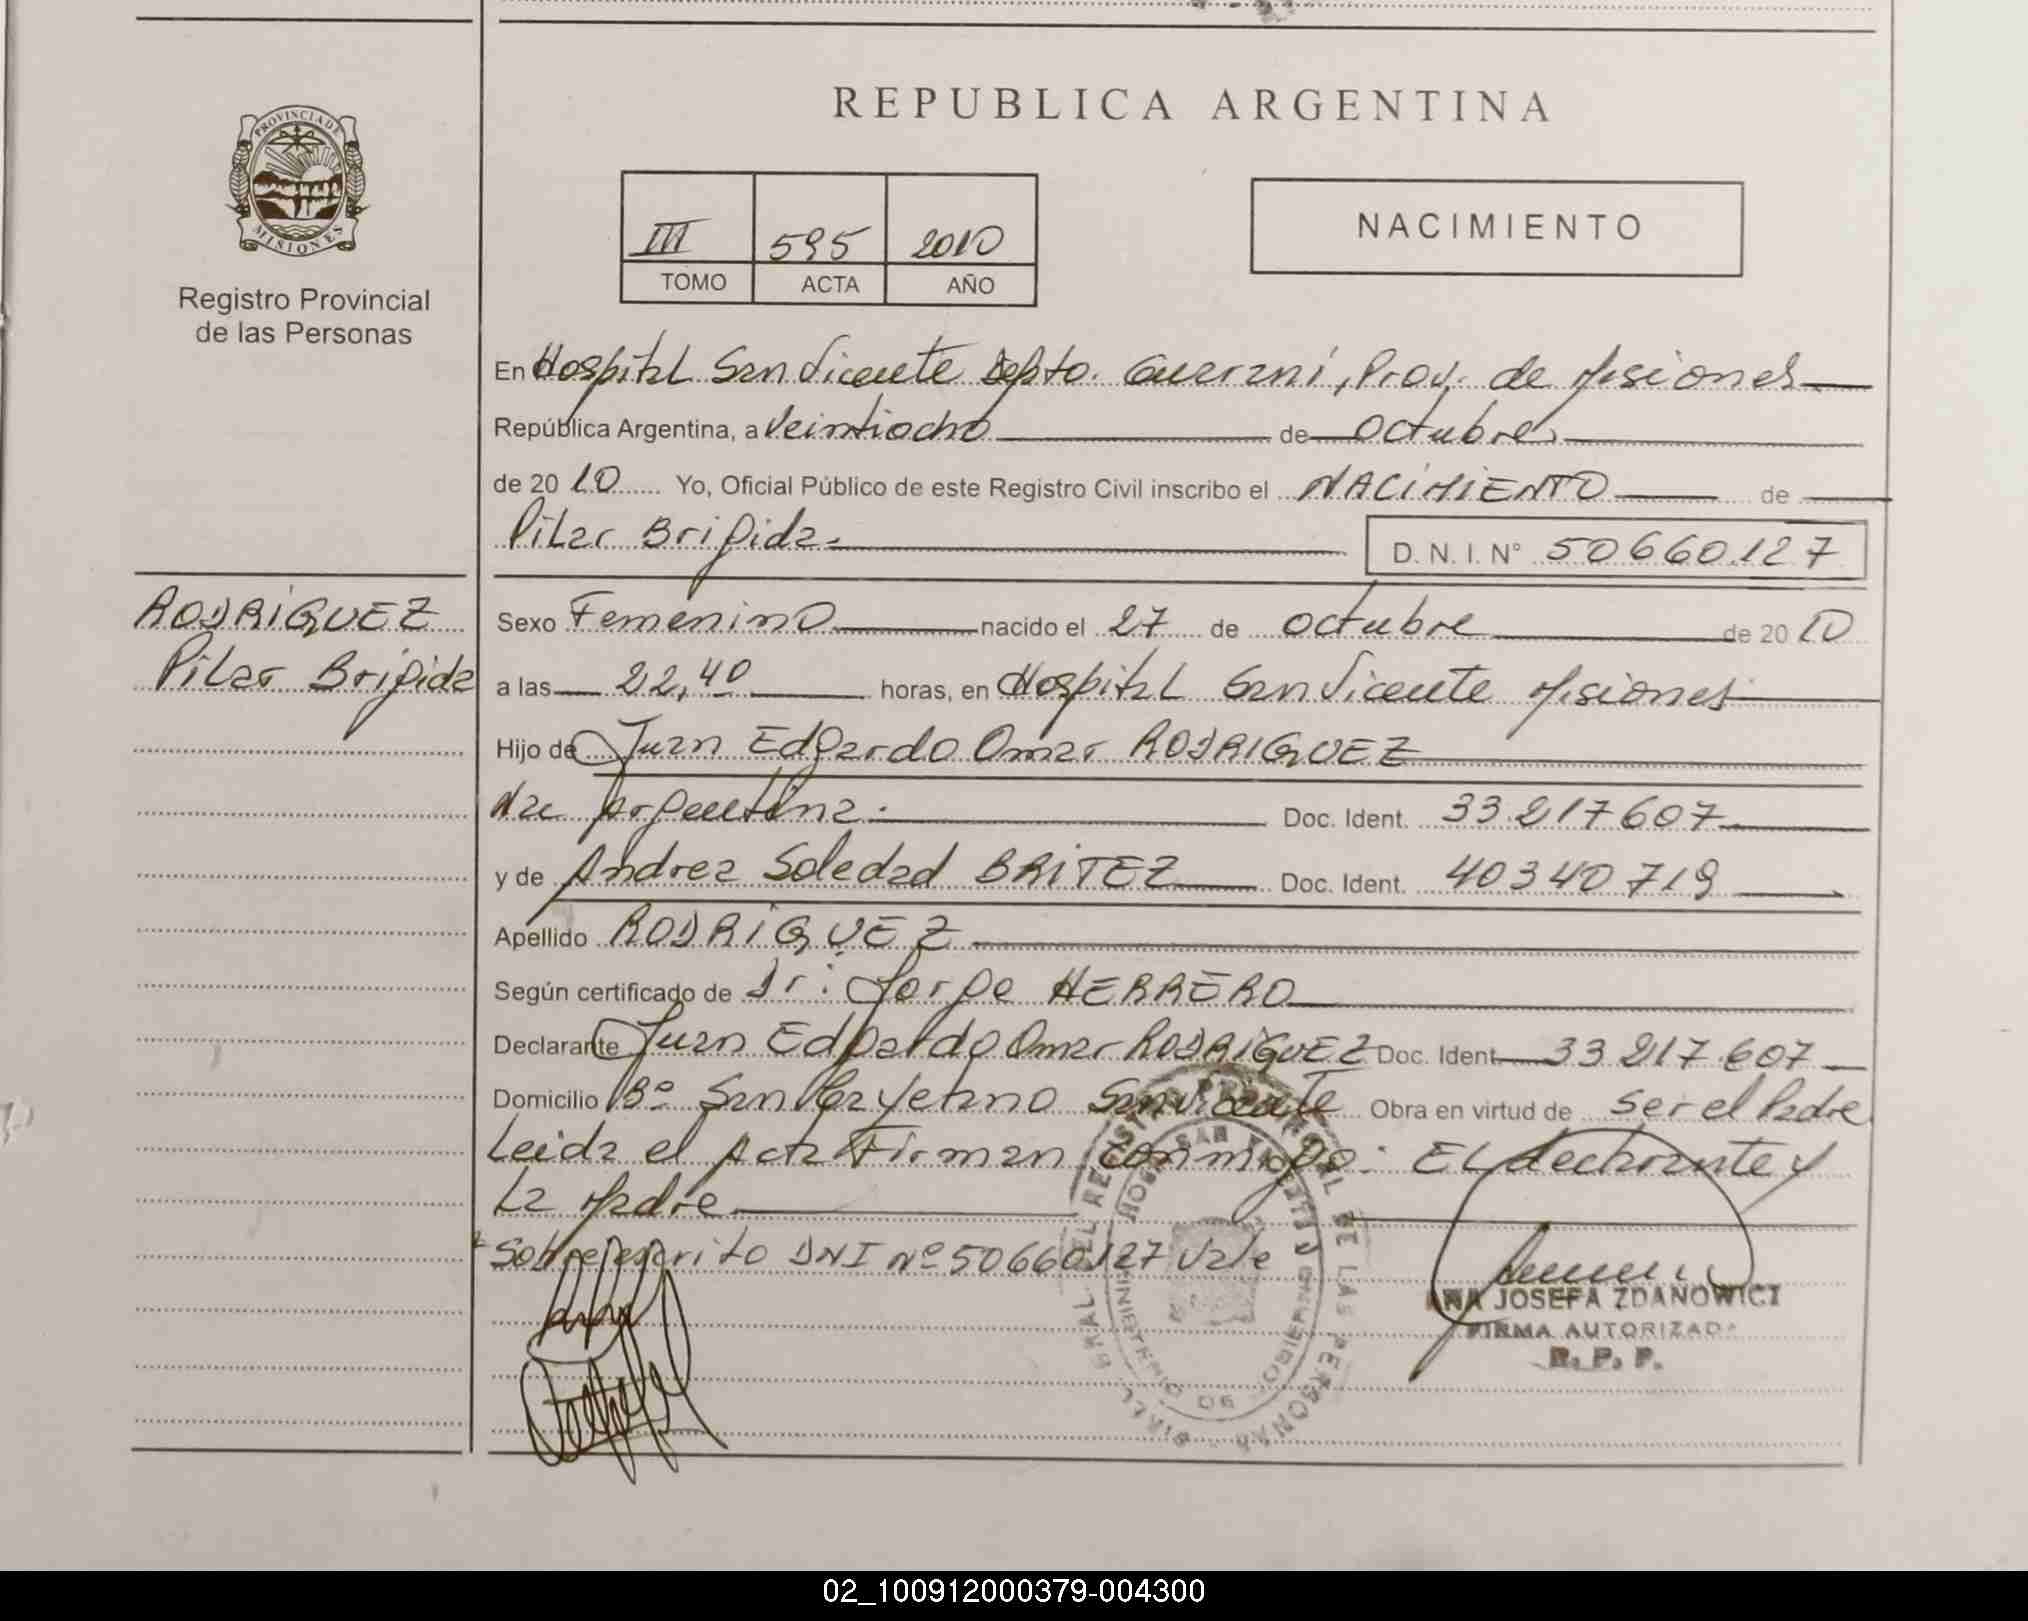 REPUBLICA ARGENTINA
PROVINCIA DE
MISIONES
Registro Provincial
de las Personas
III 595 2010
TOMO ACTA AÑO
NACIMIENTO
En Hospital San Vicente Depto. Guarani, Prov. de Misiones
República Argentina, a Veintiocho de Octubre
de 2010 Yo, Oficial Público de este Registro Civil inscribo el NACIMIENTO de
Pilar Brigida.
D. N. I. N° 50660.127
RODRIGUEZ
Pilar Brigida
Sexo Femenino nacido el 27 de octubre de 2010
a las 22,40 horas, en Hospital San Vicente Misiones
Hijo de Juan Edgardo Omar RODRIGUEZ
Nac Argentina. Doc. Ident. 33.217.607
y de Andrea Soledad BRITEZ Doc. Ident. 40340719
Apellido RODRIGUEZ
Según certificado de Dr: Jorge HERRERO
Declarante Juan Edgardo Omar RODRIGUEZ Doc. Ident. 33.217.607
Domicilio B° San Cayetano San Vicente Obra en virtud de ser el Padre
Leida el Acta Firman conmigo: El declarante y
La Madre
Sobreescrito DNI N° 50660.127 Vale
ANA JOSEFA ZDANOWICZ
FIRMA AUTORIZADA
R. P. P.
02_100912000379-004300